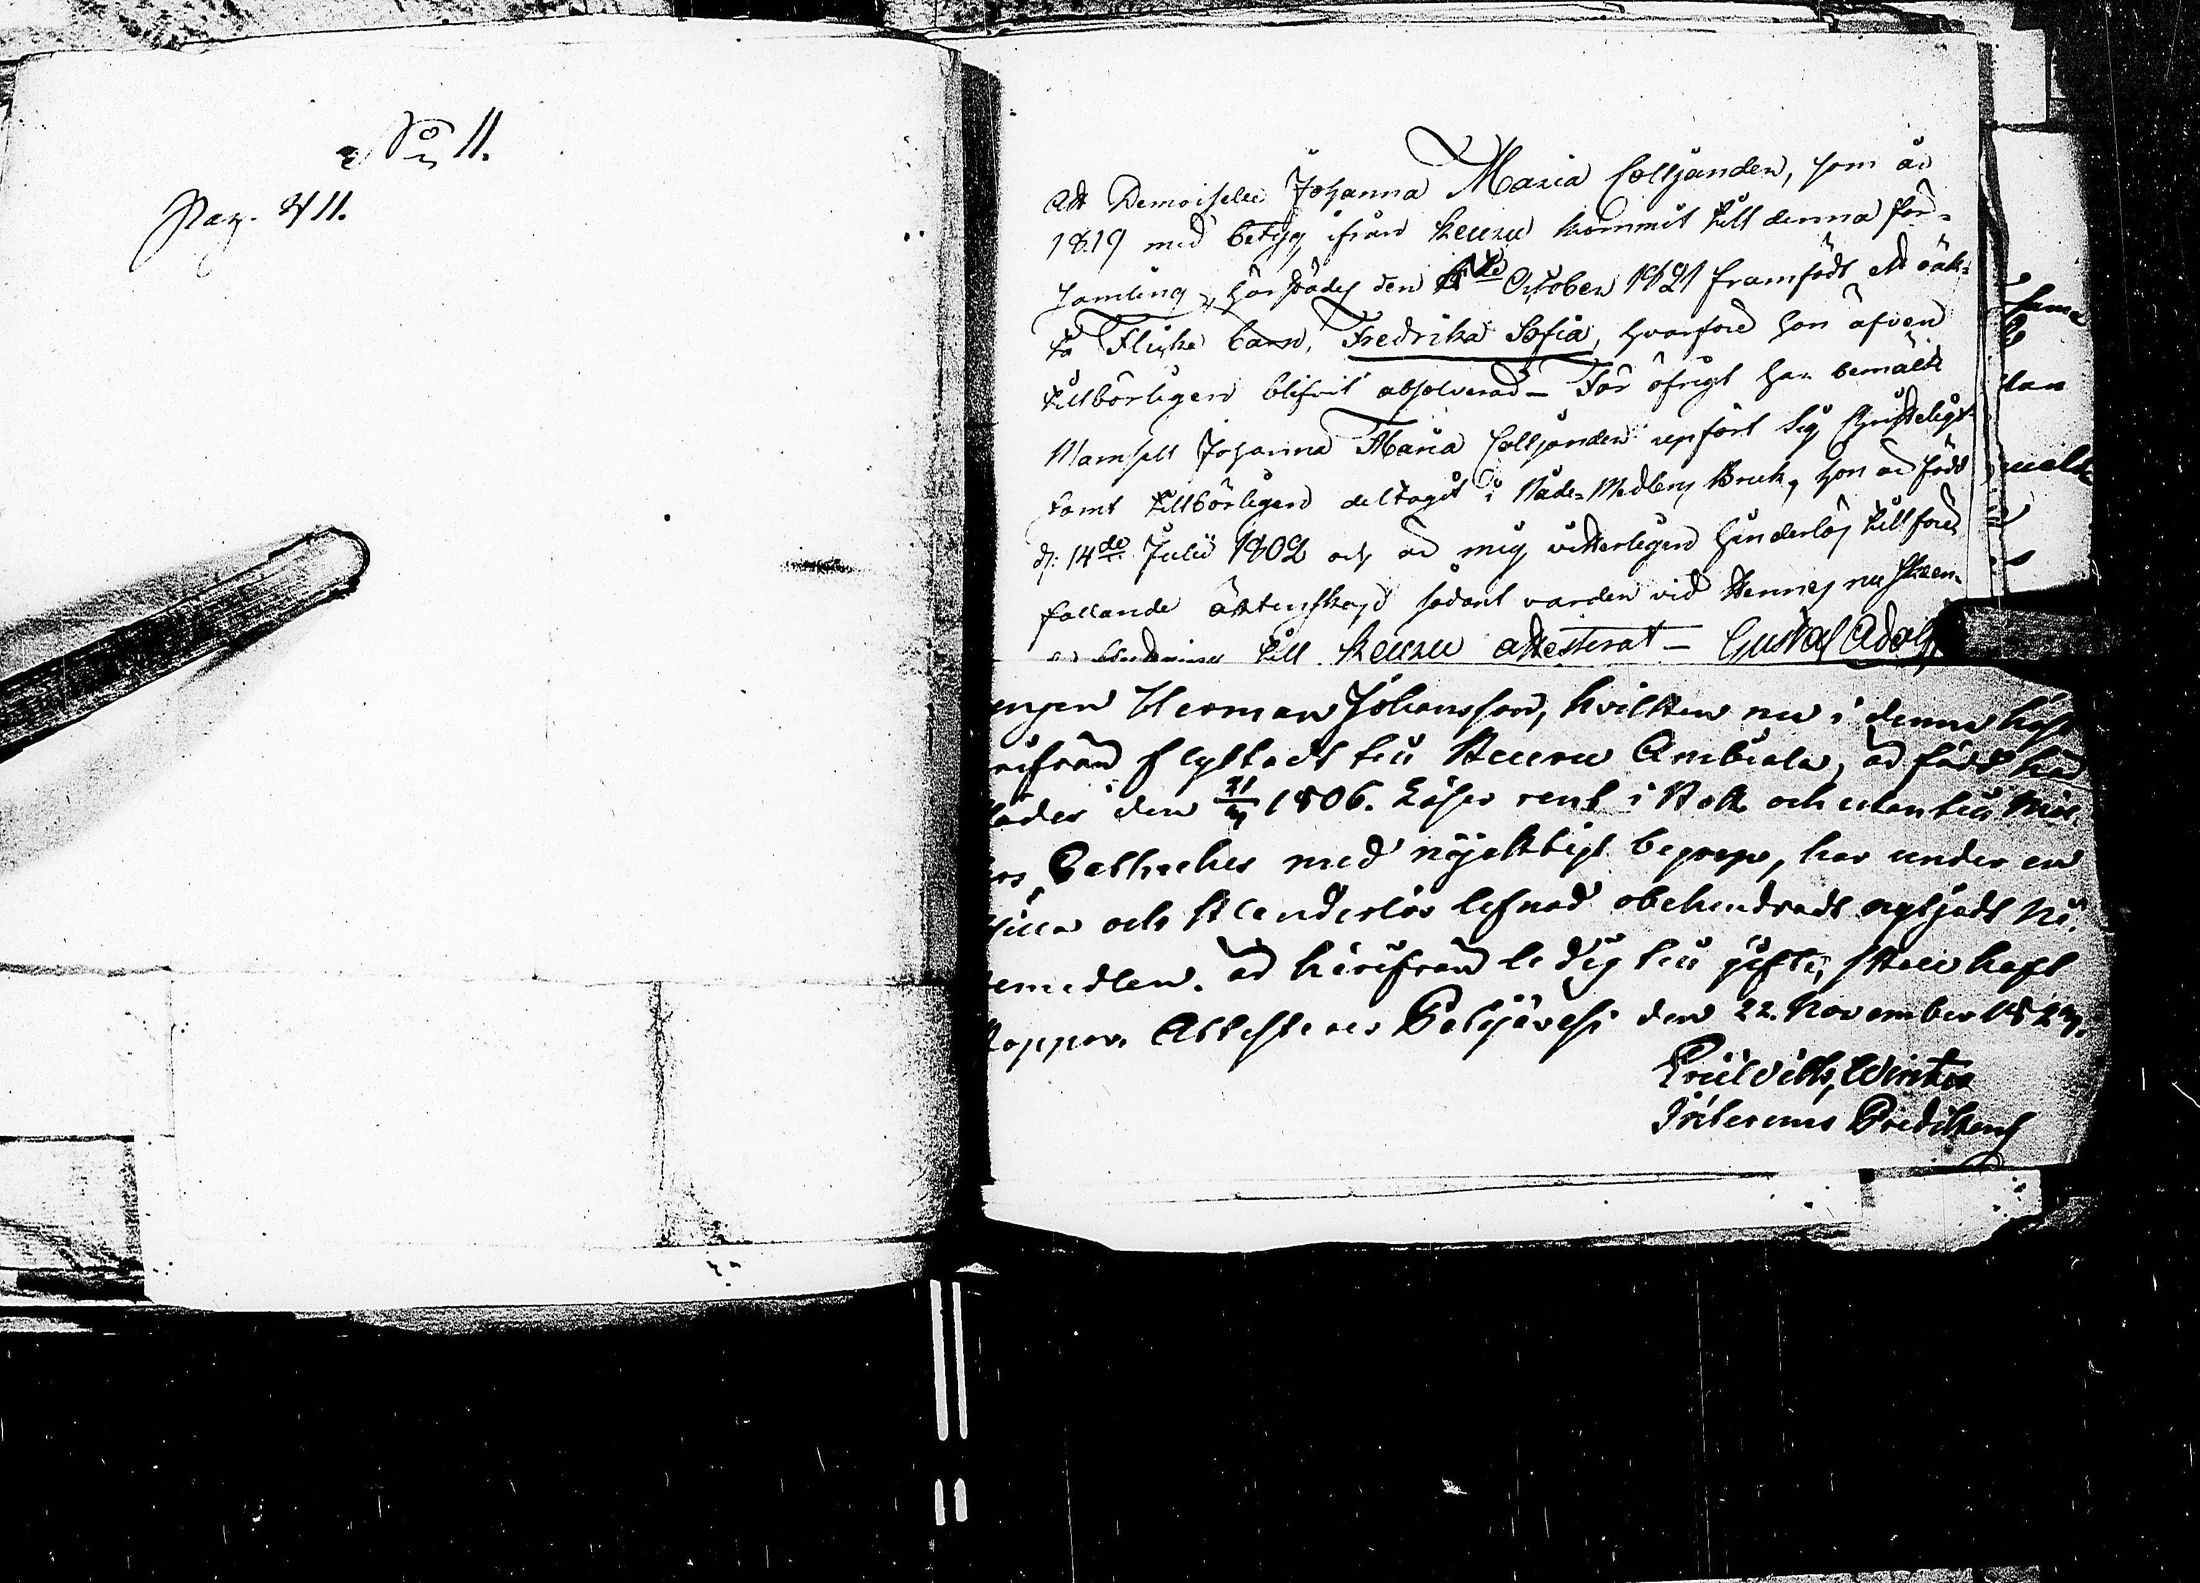 No 11.
Pag. 411.
Att Demoiselle Johanna Maria Colljanden, som år
1819 med betyg ifrån Keuru kommit till denna för=
samling, härstädes den October 1821 framfödt ett oäk=
ta Flicke barn, Fredrika Sofia, hvarföre hon äfven
tillbörligen blifvit absolverad – För öfrigt har bemälte
Mamsell Johanna Maria Colljanden uppfört sig Christeligt
samt tillbörligen deltagit i Nåde-Medlens Bruk, hon är född
d. 14de Julii 1802 och är mig vitterligen hinderlös till före
fallande äktenskap, sådant varder vid Hennes nu
till Keuru attesterat – Gustaf Adolf
Herman Johansson, hvilken nu i denna höst
ifrån flyttadt till Keuru Ambiala, är född här
städes den 1806. Läser rent i Bok och utantill
med nöjaktigt begrepp, har under en
och klanderlös lefnad obehindradt nytjadt Nå-
demedlen. är härifrån ledig till gifte, skall haft
koppor. Attesteras Petäjävesi den 22. November 182
Winter
Predikant